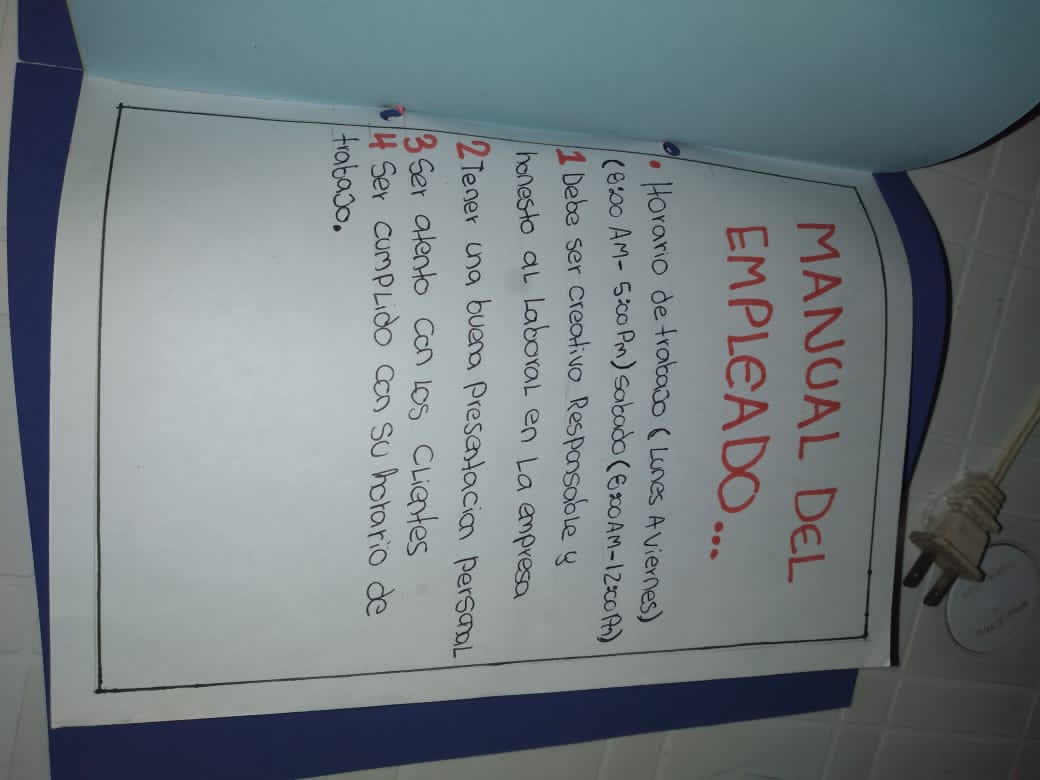 MANUAL DEL
EMPLEADO...
• Horario de trabajo (Lunes A viernes)
(8:00 AM- 5:00 Pm) sabado (8:00 AM-12:00 Pm)
1 Debe ser creativo Responsable y
honesto al Laboral en La empresa
2 Tener una buena presentacion personal
3 Ser atento con los clientes
4 Ser cumplido con su horario de
trabajo.